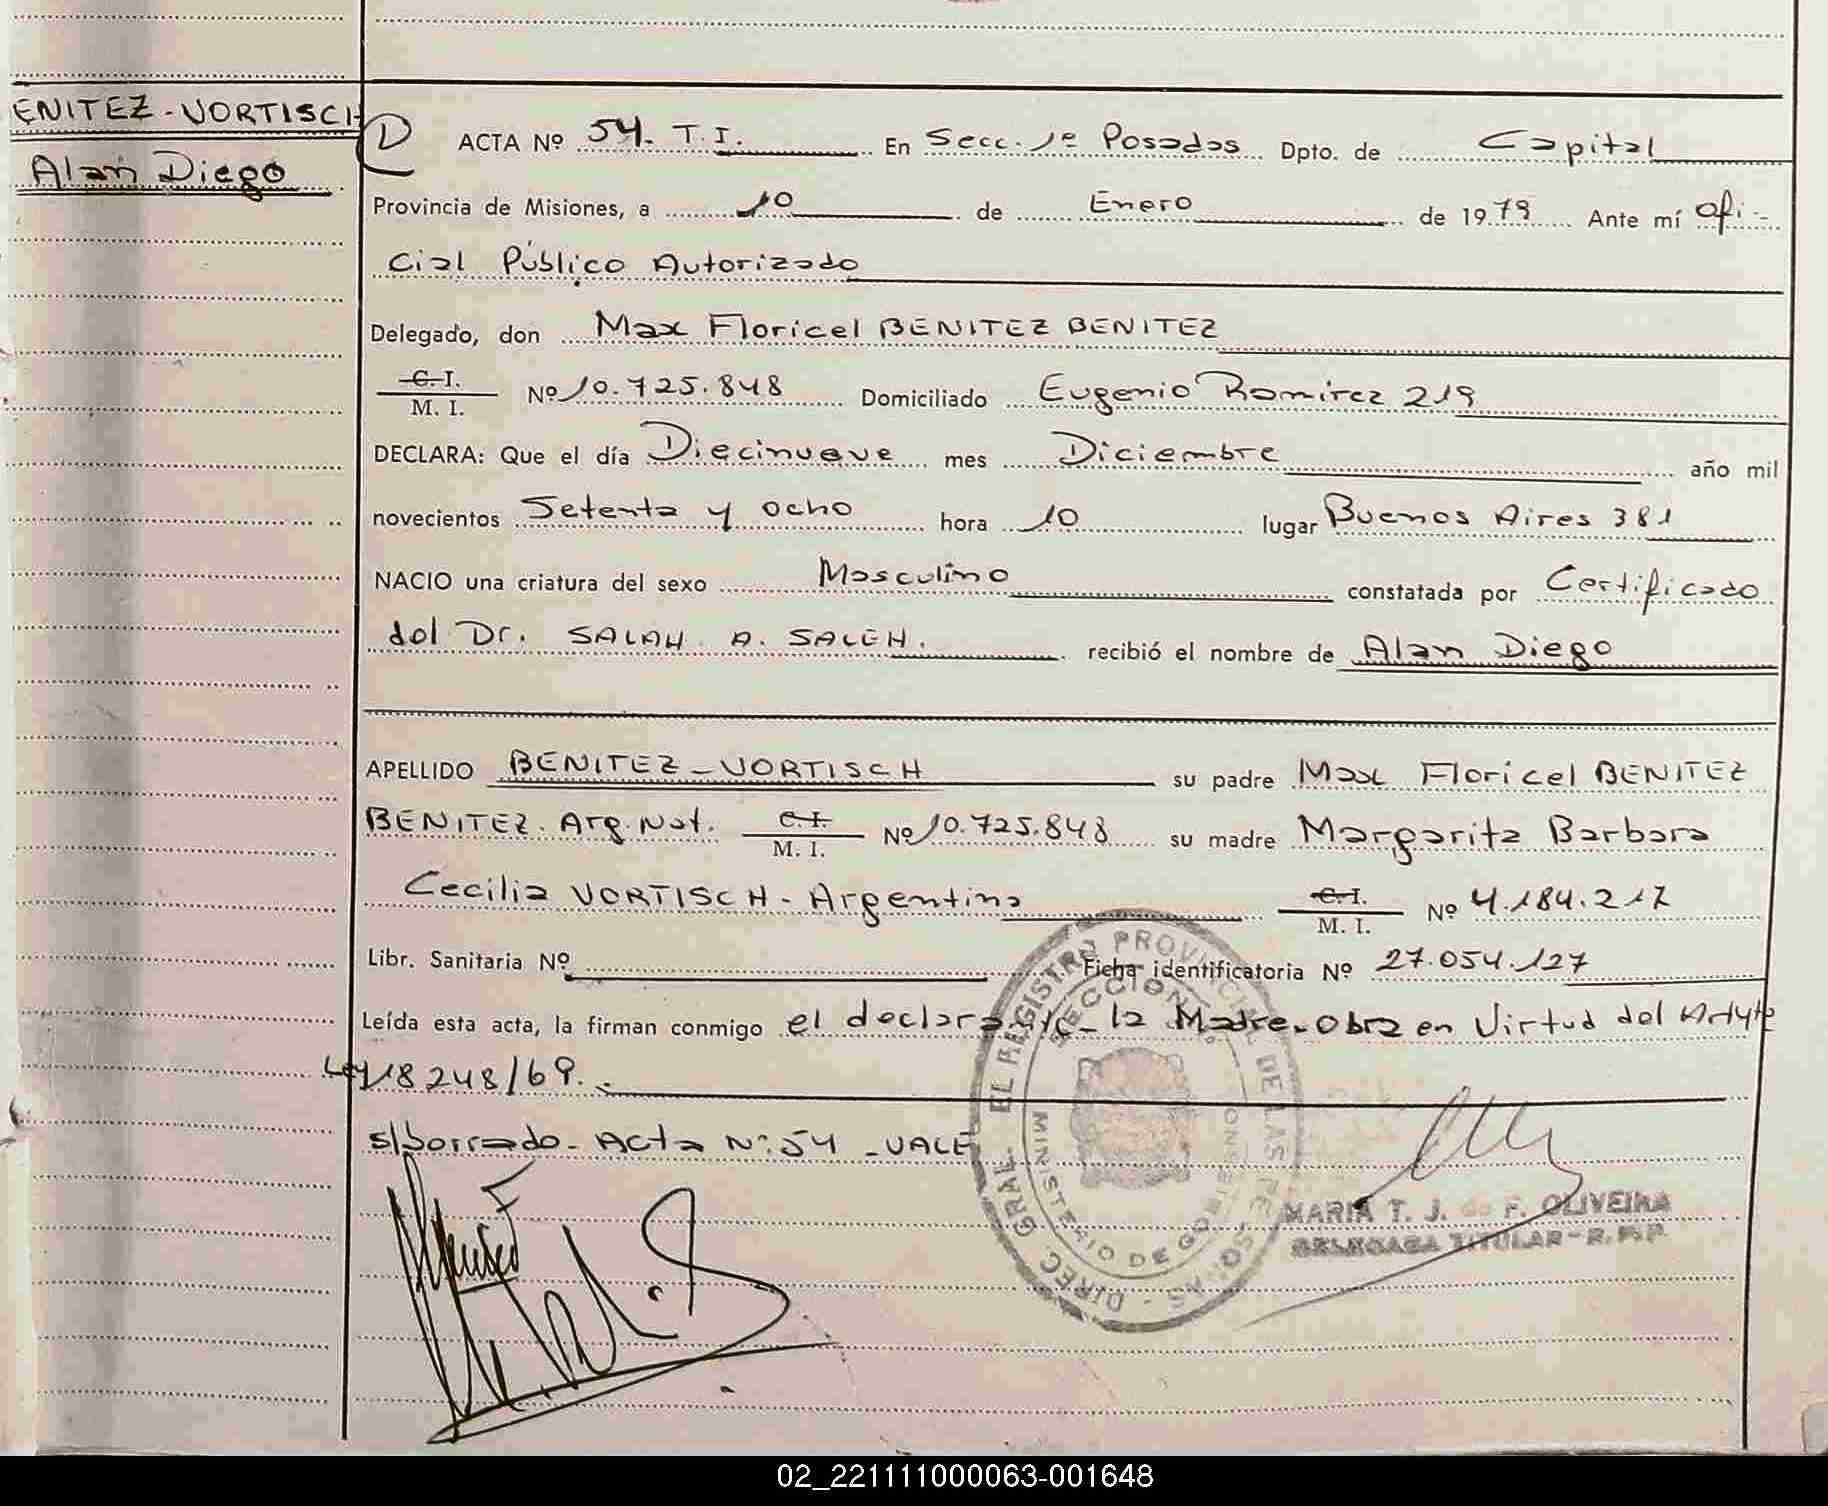 ENITEZ-VORTISCH
Alan Diego
D ACTA Nº 54. T.I. En Secc. 1ª Posadas Dpto. de Capital
Provincia de Misiones, a 10 de Enero de 1979 Ante mí ofi-
cial Público Autorizado
Delegado, don Max Floricel BENITEZ BENITEZ
C. I.
M. I. Nº 10.725.848 Domiciliado Eugenio Ramirez 219
DECLARA: Que el día Diecinueve mes Diciembre año mil
novecientos Setenta y ocho hora 10 lugar Buenos Aires 381
NACIO una criatura del sexo Masculino constatada por Certificado
del Dr. SALAH. A. SALEH. recibió el nombre de Alan Diego
APELLIDO BENITEZ-VORTISCH su padre Max Floricel BENITEZ
BENITEZ. Arg. Nat. C. I. M. I. Nº 10.725.848 su madre Margarita Barbara
Cecilia VORTISCH - Argentina C. I. M. I. Nº 4.184.217
Libr. Sanitaria Nº Ficha identificatoria Nº 27.054.127
Leída esta acta, la firman conmigo el declarante - la Madre - obra en Virtud del
Ley 18248/69.-
s/borrado - Acta Nº: 54 - VALE
DIREC. GRAL. EL REGISTRO PROVINCIAL DE LAS PERSONAS
SECCION 1º
MINISTERIO DE GOBIERNO
MARIA T. J. de F. OLIVEIRA
DELEGADA TITULAR - R.P.P.
02_221111000063-001648